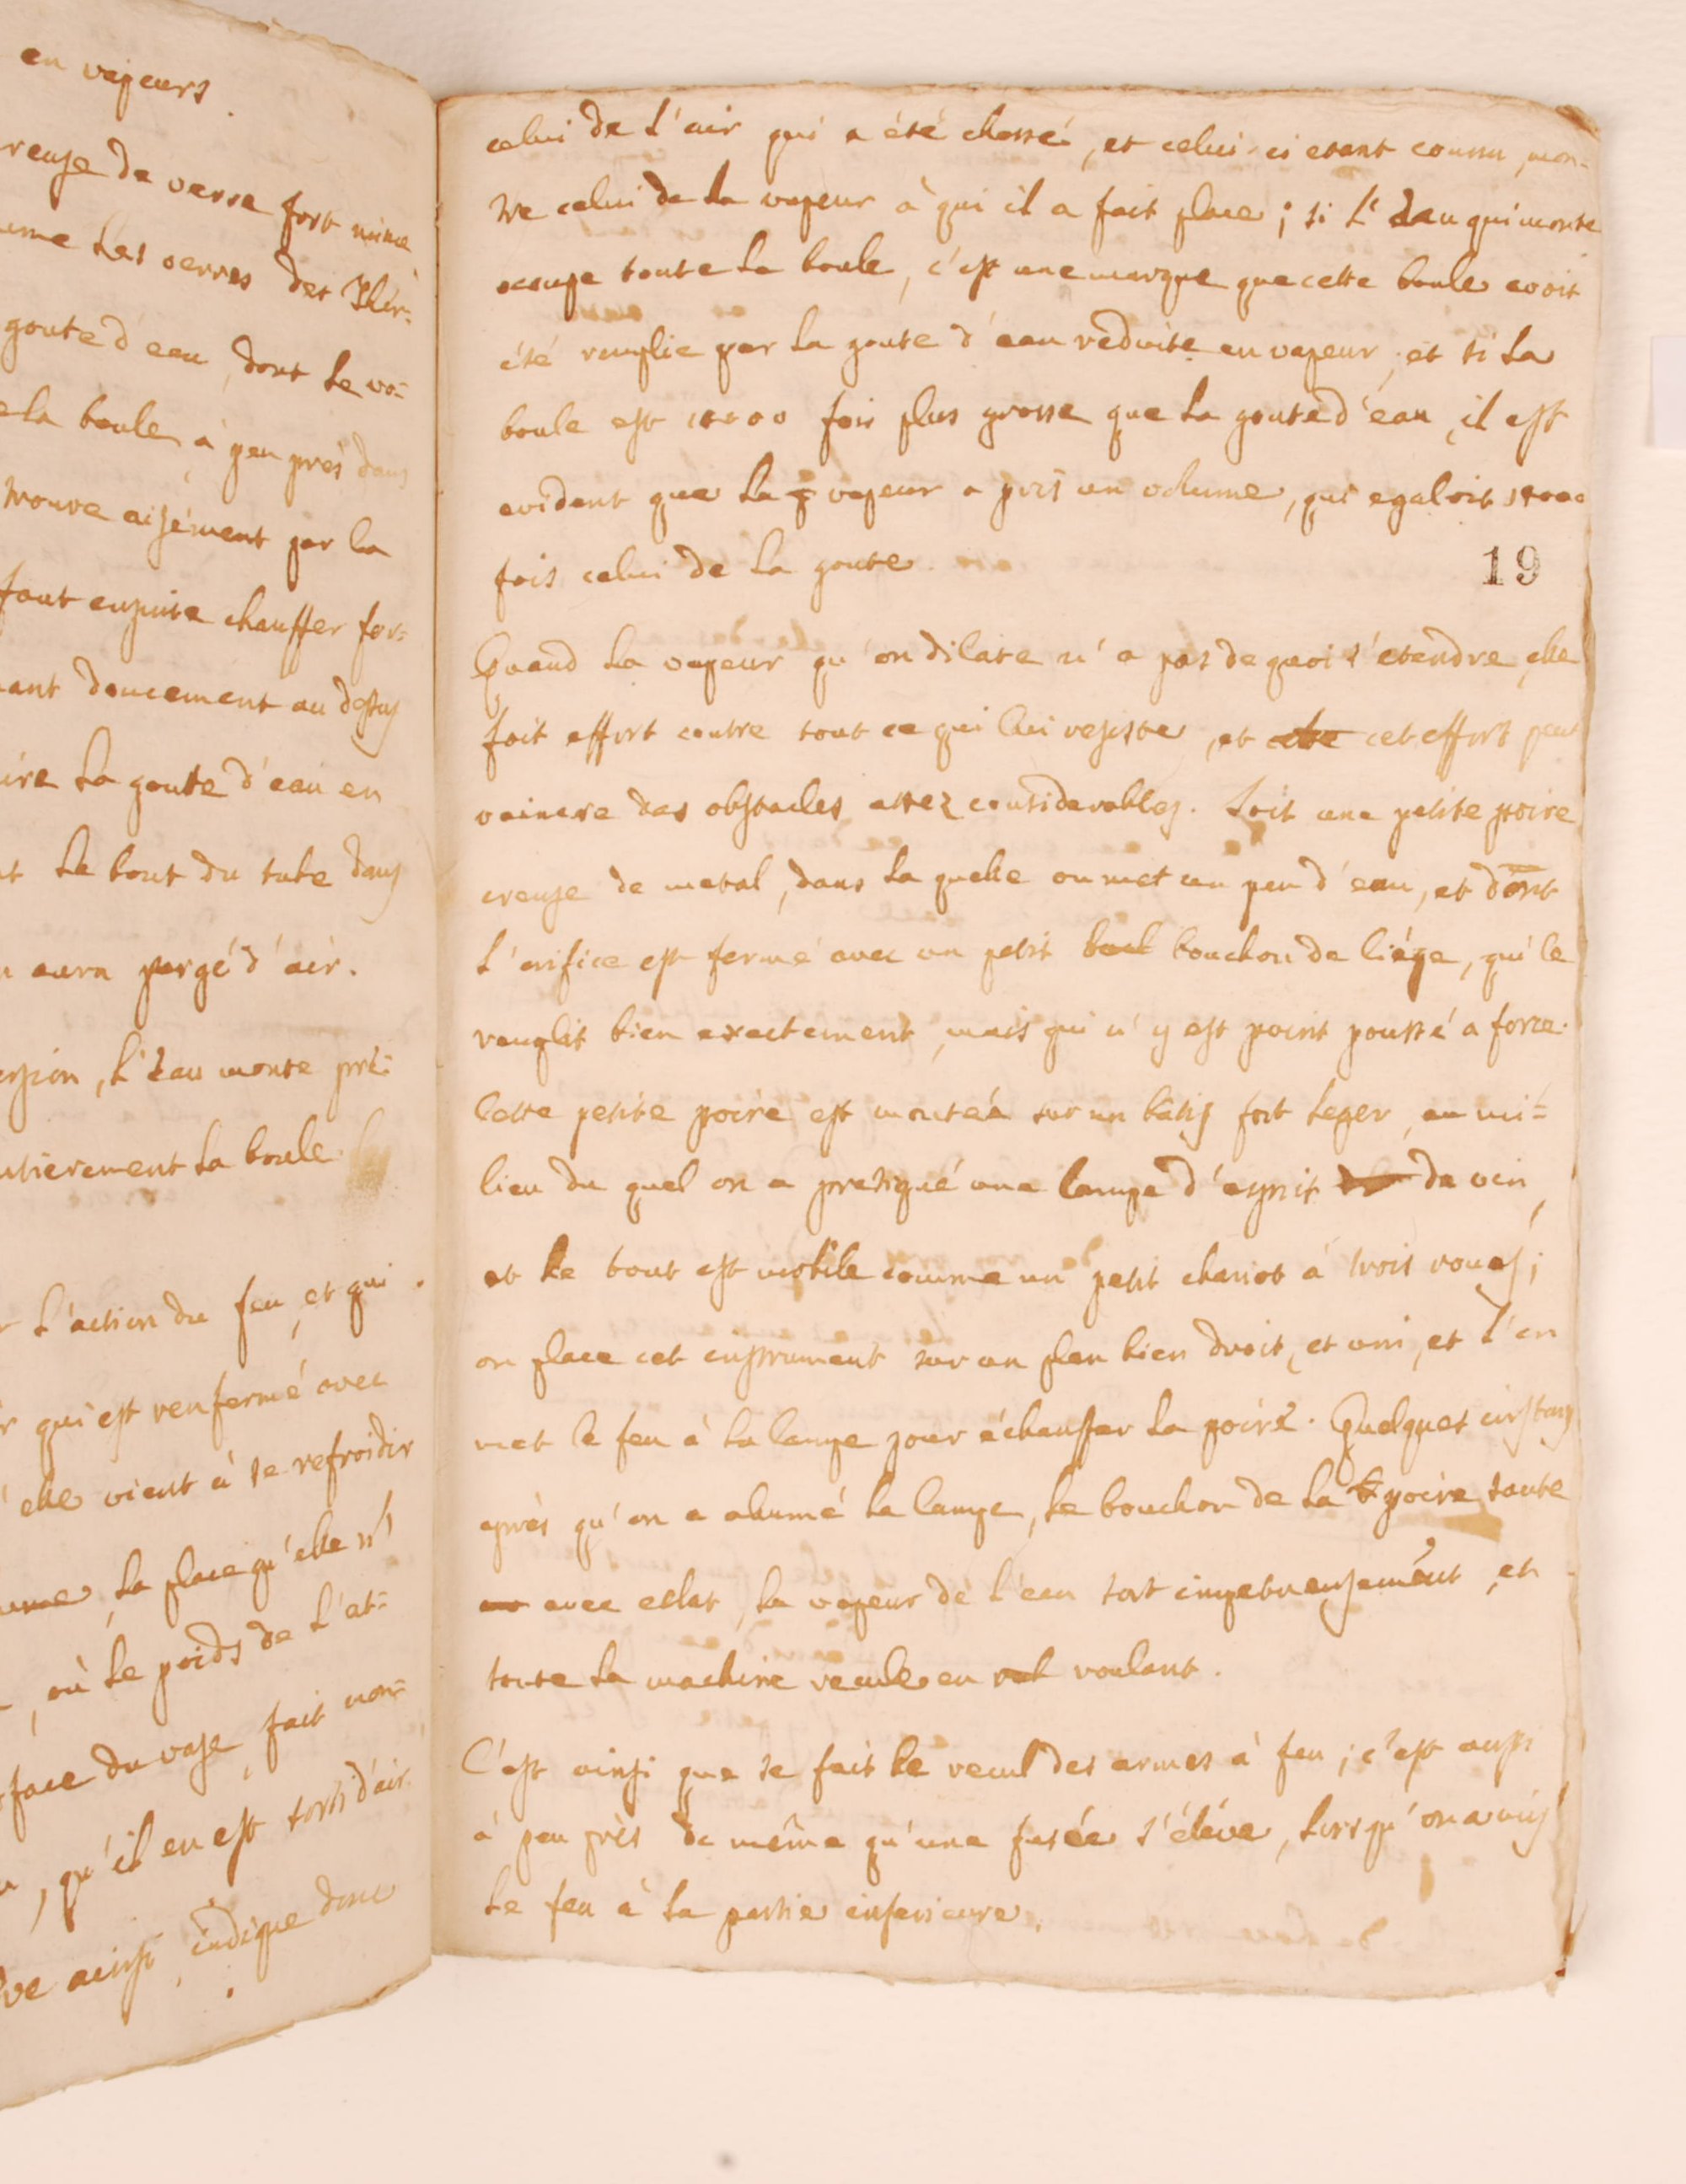 en vapeurs.
reuse de verre fort mince
ume les verres des Ther=
goute d'eau, dont le vo=
la boule, à peu près dans
trouve aisément par la
faut ensuite chauffer for=
ant doucement au dessus
ire la goute d'eau en
t le bout du tube dans
aura purgé d'air.
ersion, l'eau monte pré=
ntierement la boule.
L'action du feu, et qui
qui est renfermé avec
elle vient à se refroidir
, la place qu'elle n'
, où le poids de l'at=
face du vase, fait mon=
, qu'il en est sorti d'air
ve ainsi, indique donc
celui de l'air qui a été chassé, et celui-ci etant connu, mon-
tre celui de la vapeur à qui il a fait place; si L'eau qui monte
occupe toute la boule, c'est une marque que cette boule avoit
été remplie par la goute d'eau reduite en vapeur, et si la
boule est 14000 fois plus grosse que la goute d'eau, il est
evident que la vapeur a pris un volume, qui egaloit 14000
fois celui de la goute.
19
Quand la vapeur qu'on dilate n'a pas de quoi s'etendre, elle
fait effort contre tout ce qui lui resiste, et cet effort peut
vaincre des obstacles assez considerables. Soit une petite poire
creuse de metal, dans la quelle on met un peu d'eau, et dont
l'orifice est fermé avec un petit bouchon de liége, qui le
remplit bien exactement, mais qui n'y est point poussé a force.
Cette petite poire est montée sur un batis fort leger, au mi=
lieu du quel on a pratiqué une lampe d'esprit de vin,
et le tout est mobile comme un petit chariot à trois roues;
on place cet instrument sur un plan bien droit, et uni, et l'on
met le feu à la lampe pour échauffer la poire. Quelques instans
après qu'on a alumé la lampe, le bouchon de la poire saute
avec eclat, la vapeur de l'eau sort impetueusement, et
toute la machine recule en roulant.
C'est ainsi que se fait le recul des armes à feu; c'est aussi
à peu près de même qu'une fusée s'éléve, lorsqu'on a mis
le feu à sa partie inferieure.